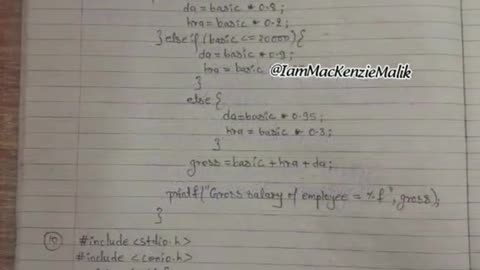 da = basic * 0.8;
hra = basic * 0.2;
} else if (basic <= 20000) {
da = basic * 0.9;
hra = basic
@IamMacKenzieMalik
}
else {
da = basic * 0.95;
hra = basic * 0.3;
}
gross = basic + hra + da;
printf("Gross salary of employee = %.f", gross);
}
10
#include <stdio.h>
#include <conio.h>